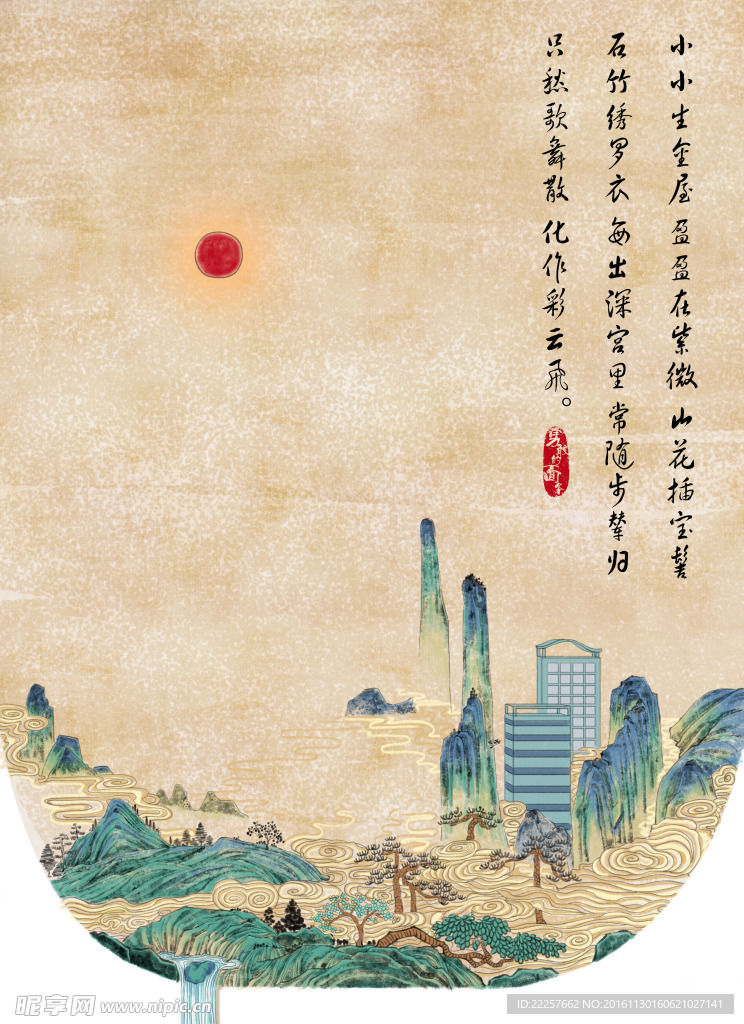 小小生金屋 盈盈在紫微 山花插宝髻
石竹绣罗衣 每出深宫里 常随步辇归
只愁歌舞散 化作彩云飞。
昵享网 www.nipic.cn
ID:22257662 NO:20161130160621027141